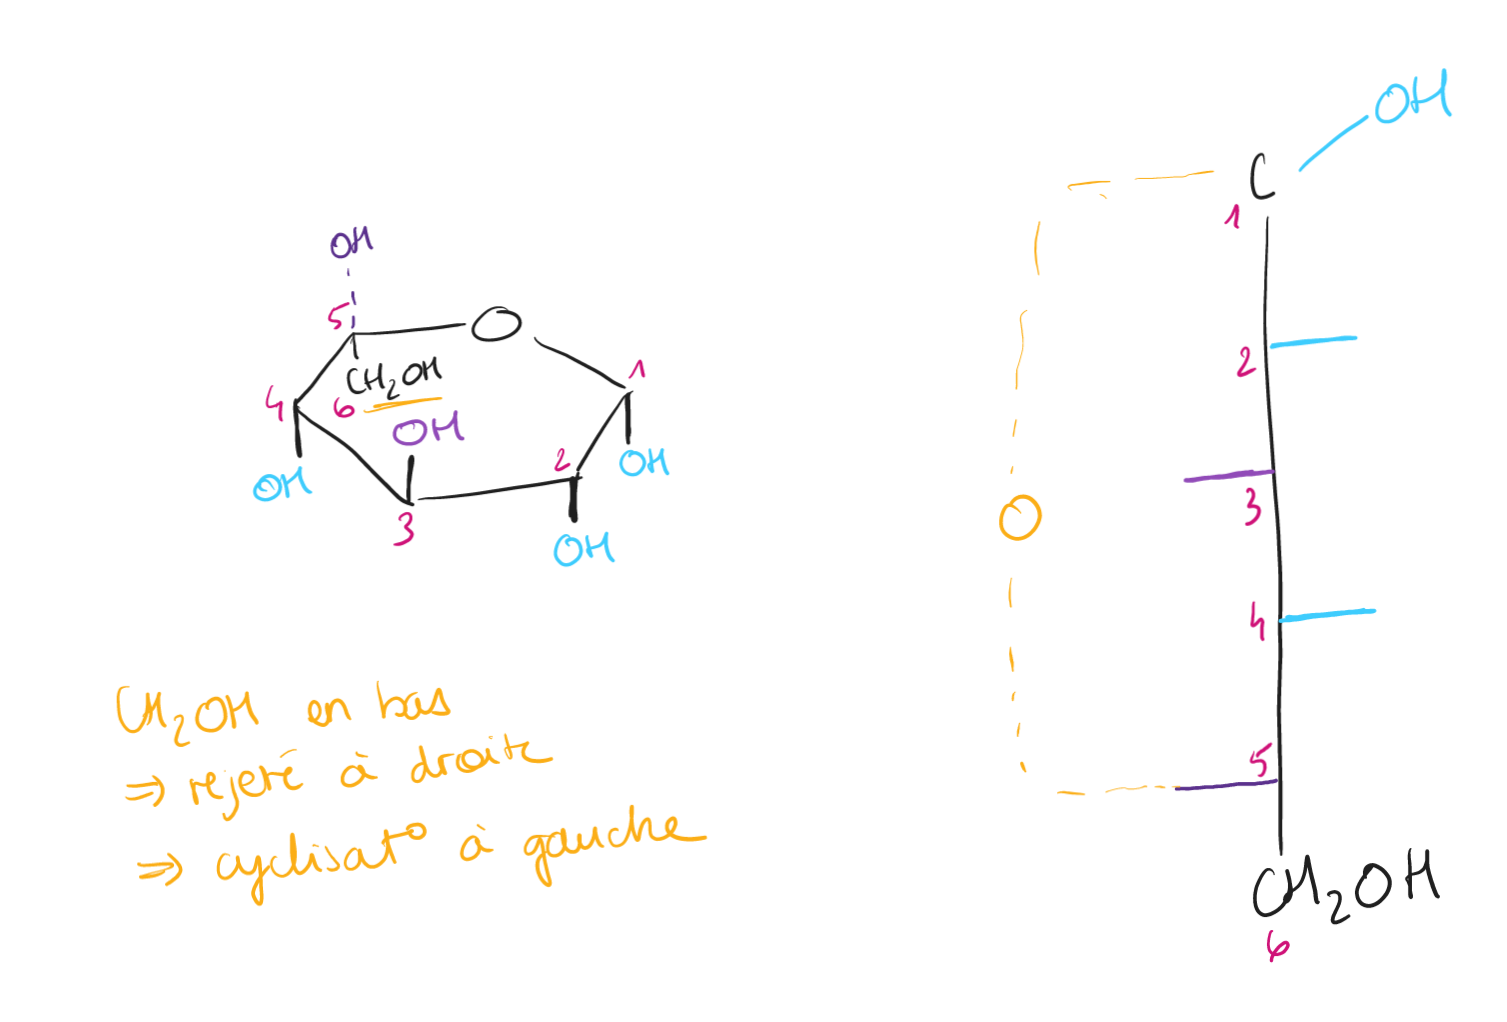 OH
5
O
CH₂OH
1
4
6
OH
2
OH
OH
3
OH
CH₂OH en bas
⇒ rejeté à droite
⇒ cyclisat° à gauche
OH
C
1
2
3
O
4
5
CH₂OH
6